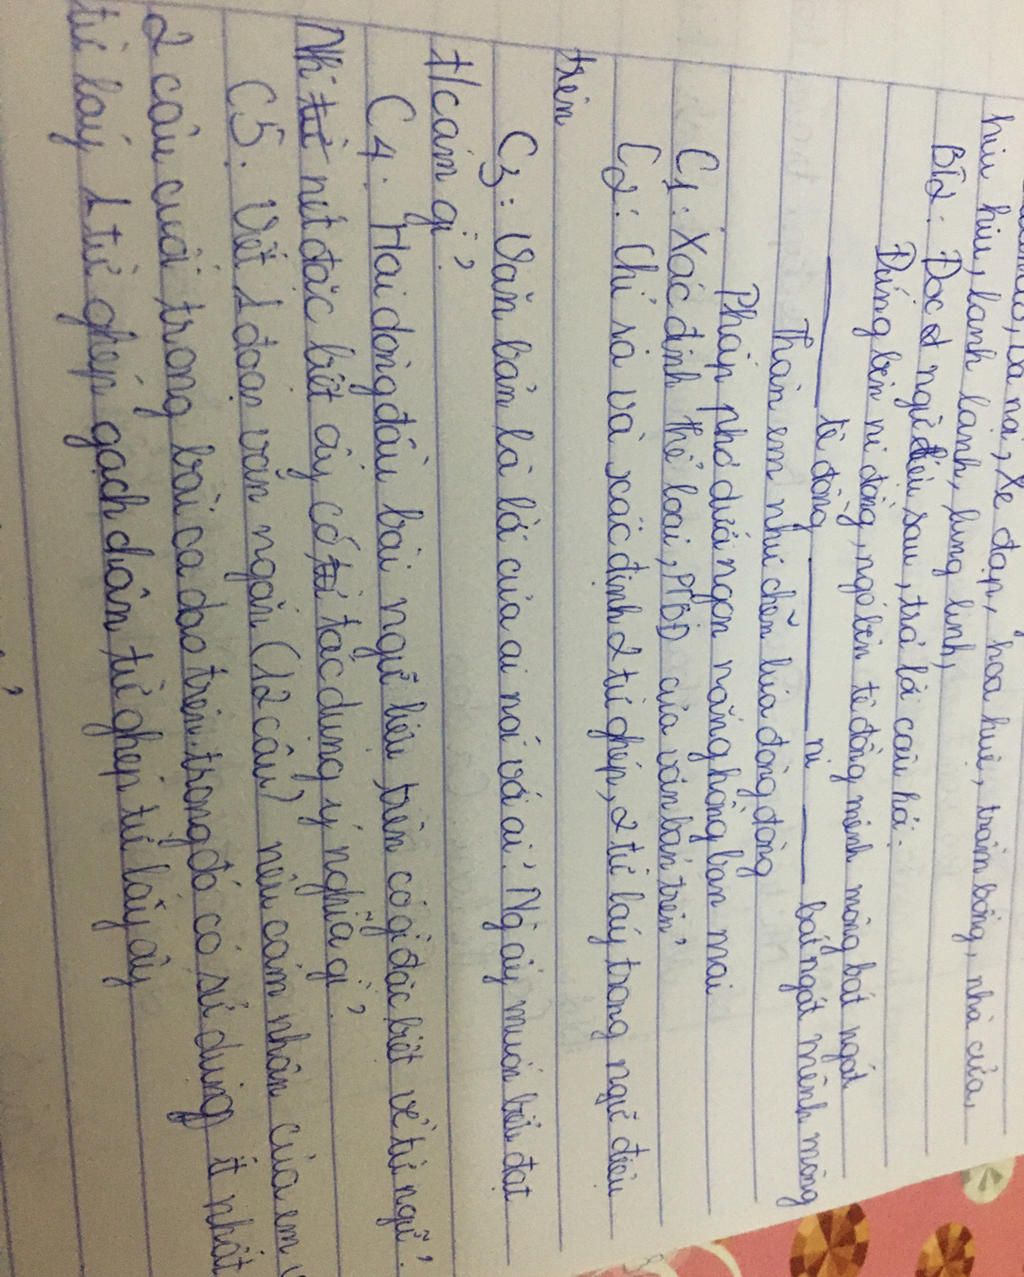 bà nà, xe đạp, hoa huệ, trầm bổng, nhà cửa,
hiu hiu, lanh lảnh, lung linh,
BT2: Đọc ngữ liệu sau, trả lời câu hỏi:
Đứng bên ni đồng, ngó bên tê đồng mênh mông bát ngát
——— tê đồng ——— ni ——— bát ngát mênh mông
Thân em như chẽn lúa đòng đòng
Phất phơ dưới ngọn nắng hồng ban mai
C1: Xác định thể loại, PTBĐ của văn bản trên?
C2: Chỉ ra và xác định 2 từ ghép, 2 từ láy trong ngữ điệu
trên
C3: Văn bản là lời của ai nói với ai? Ng ấy muốn biểu đạt
t/cảm gì?
C4: Hai dòng đầu bài ngữ liệu trên có gì đặc biệt về từ ngữ?
Những nét đặc biệt ấy có tác dụng ý nghĩa gì?
C5: Viết 1 đoạn văn ngắn (12 câu) nêu cảm nhận của em
2 câu cuối trong bài ca dao trên trong đó có sử dụng ít nhất
từ láy 1 từ ghép gạch chân từ ghép từ láy ấy